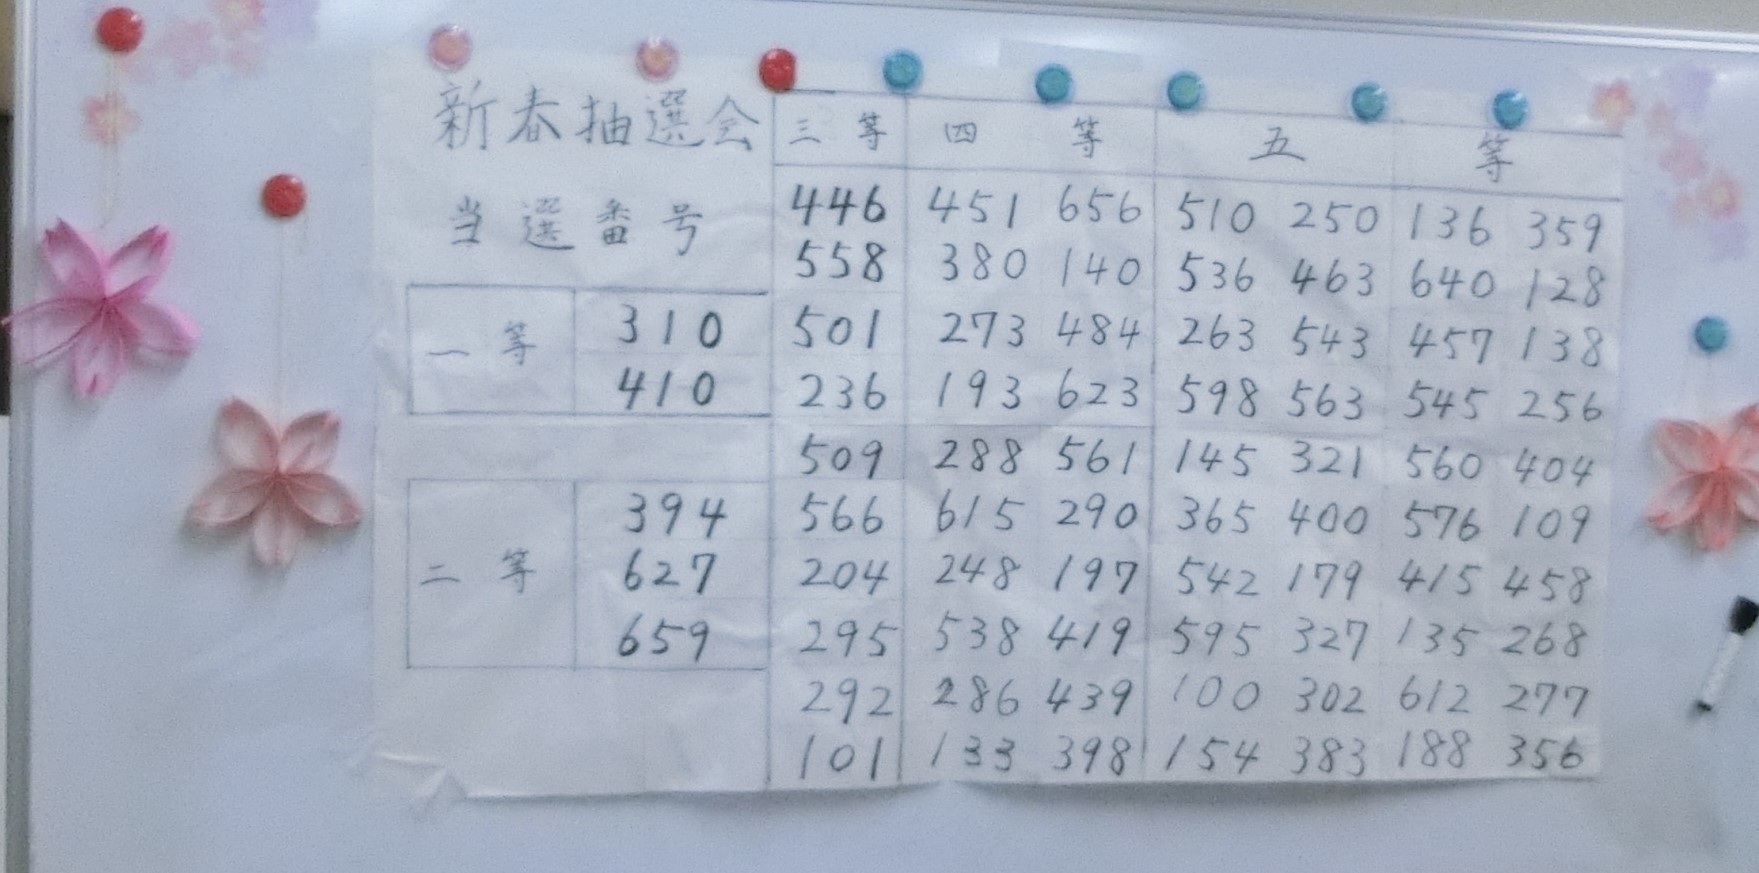 新春抽選会
当選番号
一等
310
410
二等
394
627
659
三等 四等 五等
446 451 656 510 250 136 359
558 380 140 536 463 640 128
501 273 484 263 543 457 138
236 193 623 598 563 545 256
509 288 561 145 321 560 404
566 615 290 365 400 576 109
204 248 197 542 179 415 458
295 538 419 595 327 135 268
292 286 439 100 302 612 277
101 133 398 154 383 188 356